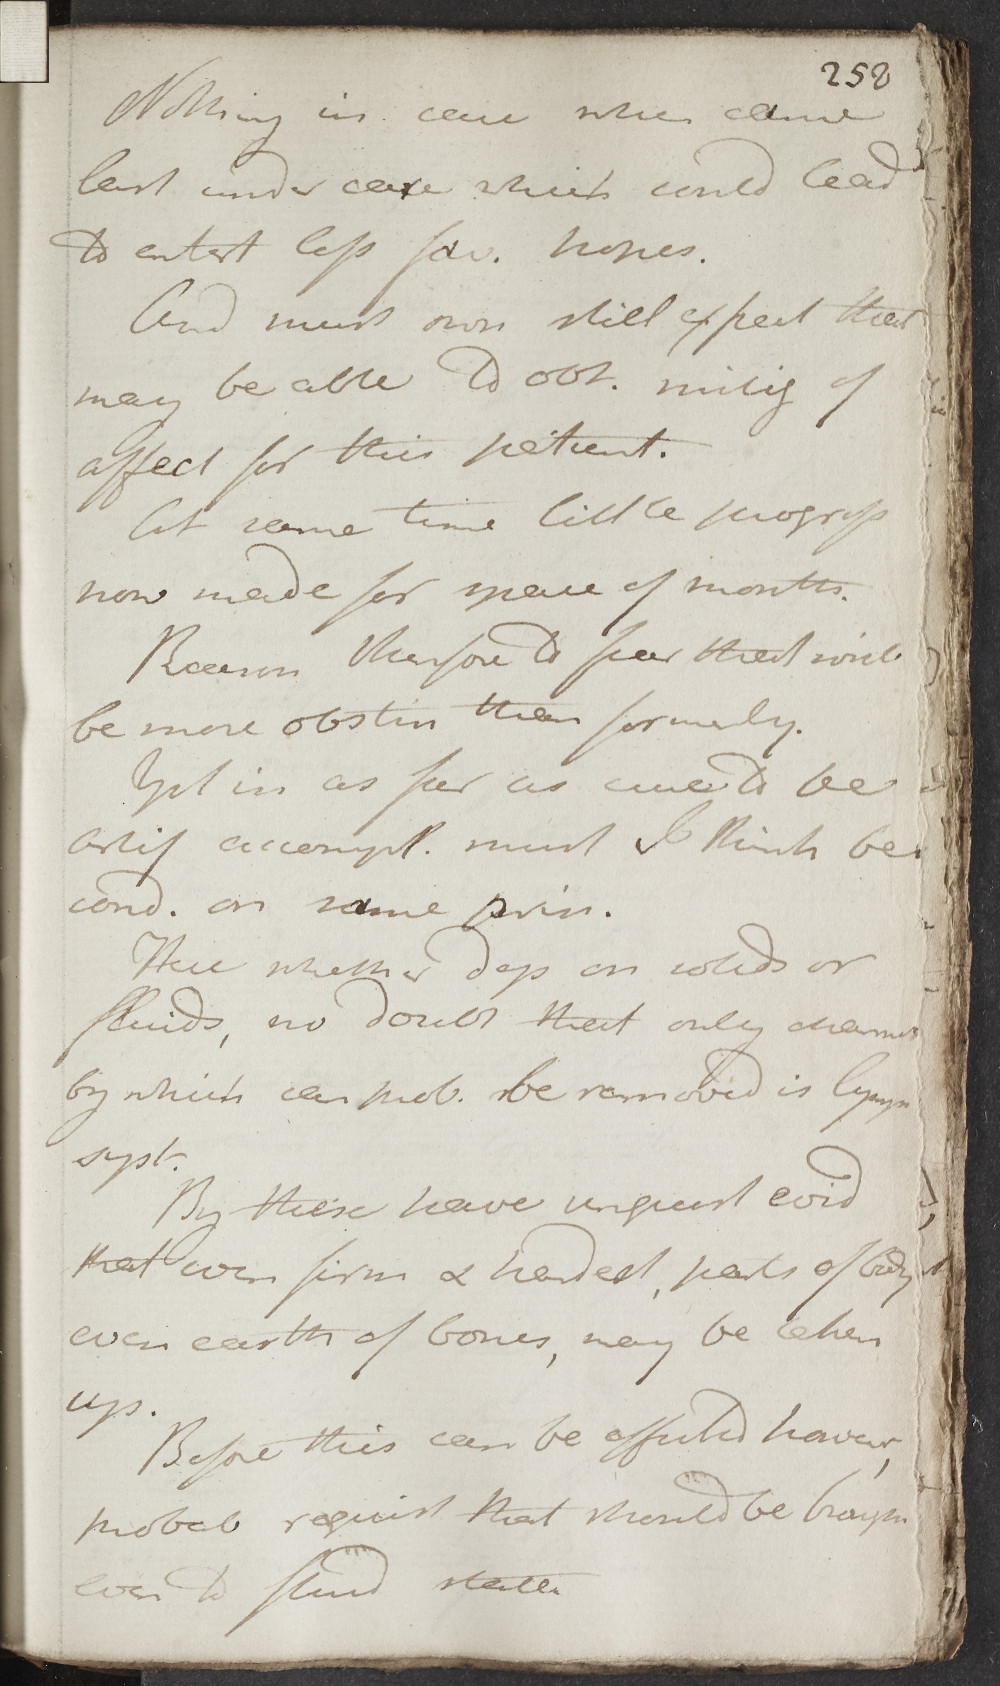 258
Nothing in case when came
last under care which could lead
to entert less fav. hopes.
And must own still expect that
may be able to obt. mitig of
affect for this patient.
At same time little progress
now made for space of months.
Reason therefore to fear that will
be more obstin than formerly.
Yet in as far as cure to be
artif accompl. must I think be
cond. on same prin.
Here whether deps on solids or
fluids, no doubt that only channel
by which can prob. be removed is lymph
syst.
By these have unquest evid
that even firm & hardest, parts of body
even earth of bones, may be taken
up.
Before this can be effected however,
probab requisit that should be brought
even to fluid state